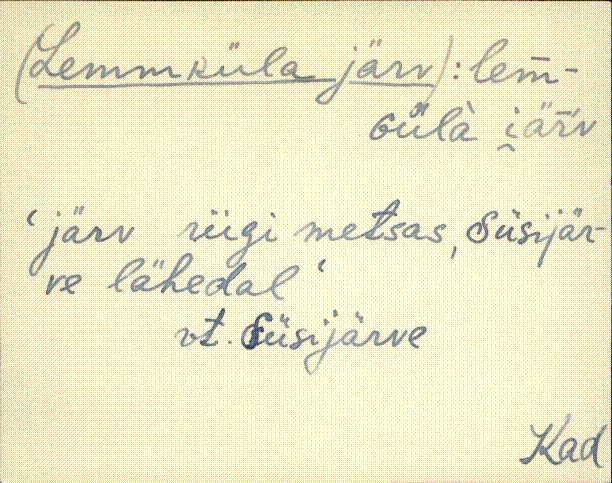 (Lemmküla järv): lem̄-
Gülà i̯är̄v
‘järv riigi metsas, Süsijär-
ve lähedal‘
vt. Süsijärve
Kad